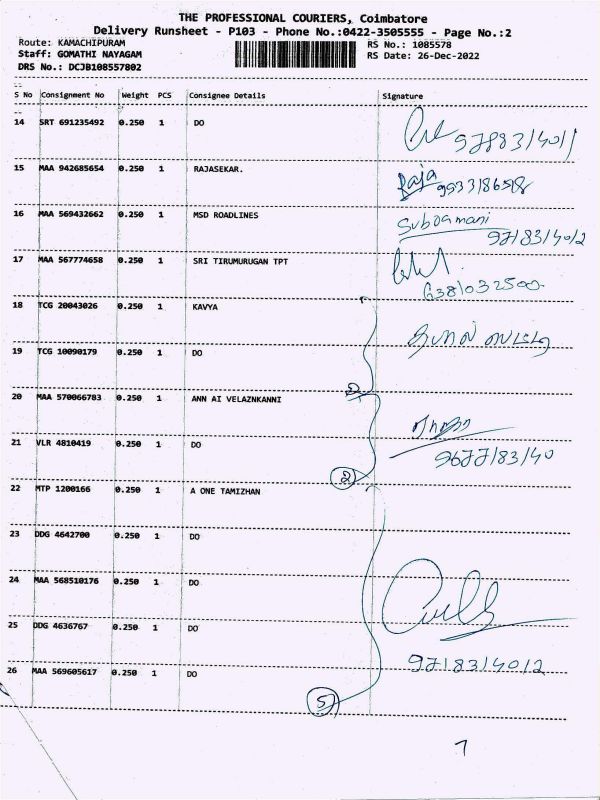 THE PROFESSIONAL COURIERS, Coimbatore
Delivery Runsheet - P103 - Phone No.:0422-3505555 - Page No.:2
Route: KAMACHIPURAM RS No.: 1085578
Staff: GOMATHI NAYAGAM RS Date: 26-Dec-2022
DRS No.: DCJB108557802
S No Consignment No Weight PCS Consignee Details Signature
14 SRT 691235492 0.250 1 DO
15 MAA 942685654 0.250 1 RAJASEKAR. Raja
16 MAA 569432662 0.250 1 MSD ROADLINES Subramani
9718314012
17 MAA 567774658 0.250 1 SRI TIRUMURUGAN TPT
6381032500
18 TCG 20043026 0.250 1 KAVYA
19 TCG 10090179 0.250 1 DO
20 MAA 570066783 0.250 1 ANN AI VELAZNKANNI 2
21 VLR 4810419 0.250 1 DO
2
22 MTP 1200166 0.250 1 A ONE TAMIZHAN
23 DDG 4642700 0.250 1 DO
24 MAA 568510176 0.250 1 DO
25 DDG 4636767 0.250 1 DO
9718314012
26 MAA 569605617 0.250 1 DO
5
7